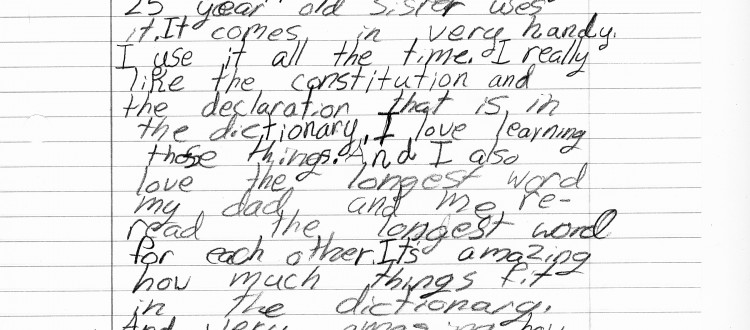 25 year old sister uses
it. It comes in very handy.
I use it all the time. I really
like the constitution and
the declaration that is in
the dictionary. I love learning
those things. And I also
love the longest word
my dad and me re-
read the longest word
for each other. It's amazing
how much things fit
in the dictionary.
And very amazing how